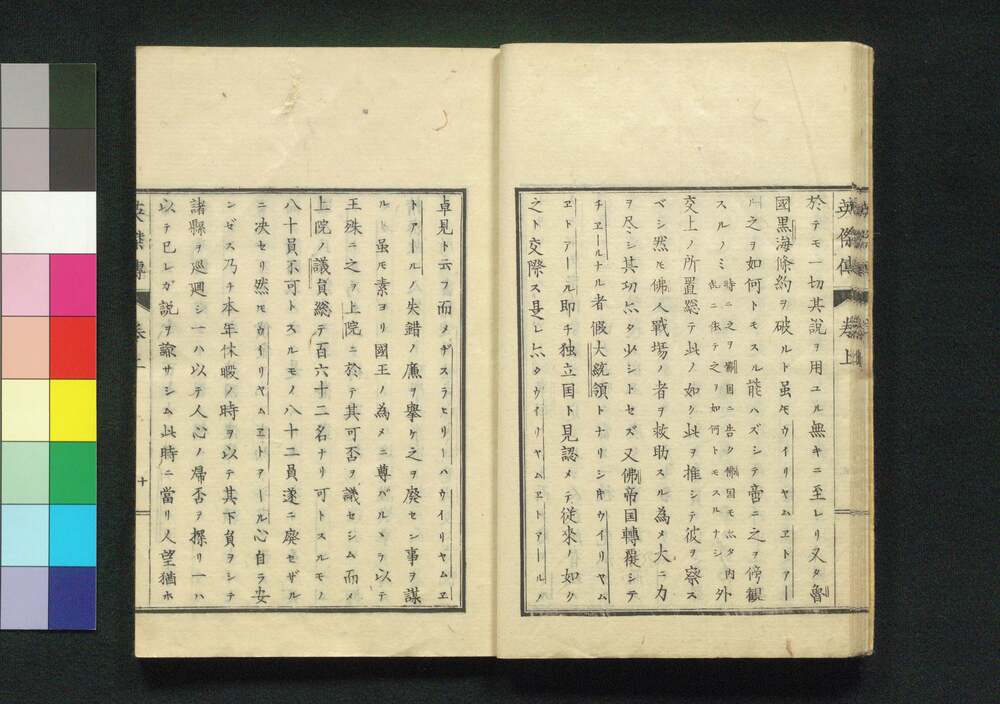 英傑傳 卷上
於テモ一切其說ヲ用ユル無キニ至レリ又タ魯
國黑海條約ヲ破ルト虽𪜈ウイリヤムヱトアー
ル之ヲ如何トモスル能ハズシテ啻ニ之ヲ傍觀
スルノミ 時ニ之ヲ獨国ニ告ク佛国モ亦タ内外
乱ニ依テ之ヲ如何トモスルナシ
交上ノ所置総テ此ノ如ク此ヲ推シテ彼ヲ察ス
ベシ然𪜈佛人戰場ノ者ヲ救助スル為メ大ニ力
ヲ尽シ其功亦タ少シトセズ又佛帝国轉覆シテ
チヱールナル者假大統領トナリシ時ウイリヤム
ヱトアール即チ独立国ト見認メテ従來ノ如ク
之ト交際ス是レ亦タウイリヤムヱトアールノ
卓見ト云フ而メヂスラヒリーハウイリヤムヱ
トアールノ失錯ノ廉ヲ擧ケ之ヲ廢セン事ヲ謀
ルト虽𪜈素ヨリ國王ノ為メニ尊バルヽヲ以テ
王殊ニ之ヲ上院ニ於テ其可否ヲ議セシム而メ
上院ノ議員総テ百六十二名ナリ可トスルモノ
八十員不可トスルモノ八十二員遂ニ廢セザル
ニ決セリ然𪜈ウイリヤムヱトアール心自ラ安
ンゼス乃チ本年休暇ノ時ヲ以テ其下負ヲシテ
諸縣ヲ巡廻シ一ハ以テ人心ノ帰否ヲ探リ一ハ
以テ已レガ説ヲ諭サシム此時ニ當リ人望猶ホ
英傑傳 卷上 十